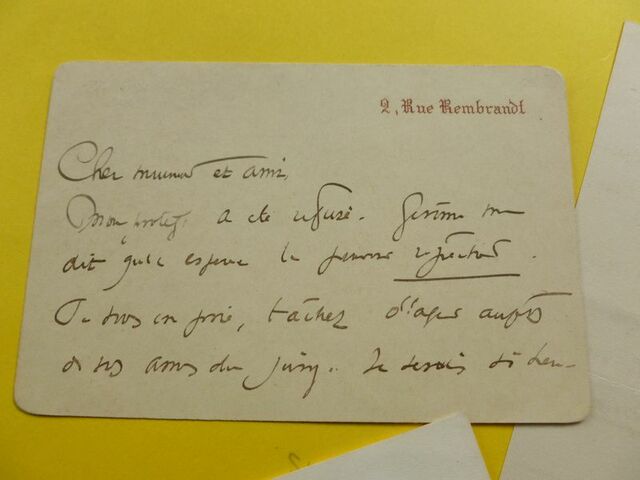 2, Rue Rembrandt
Cher et ami,
Mon protégé a été refusé. Gérôme me
dit qu'il espère le pouvoir
Je vous en prie, tâchez d'agir auprès
de vos amis du jury. Je serais si heu-